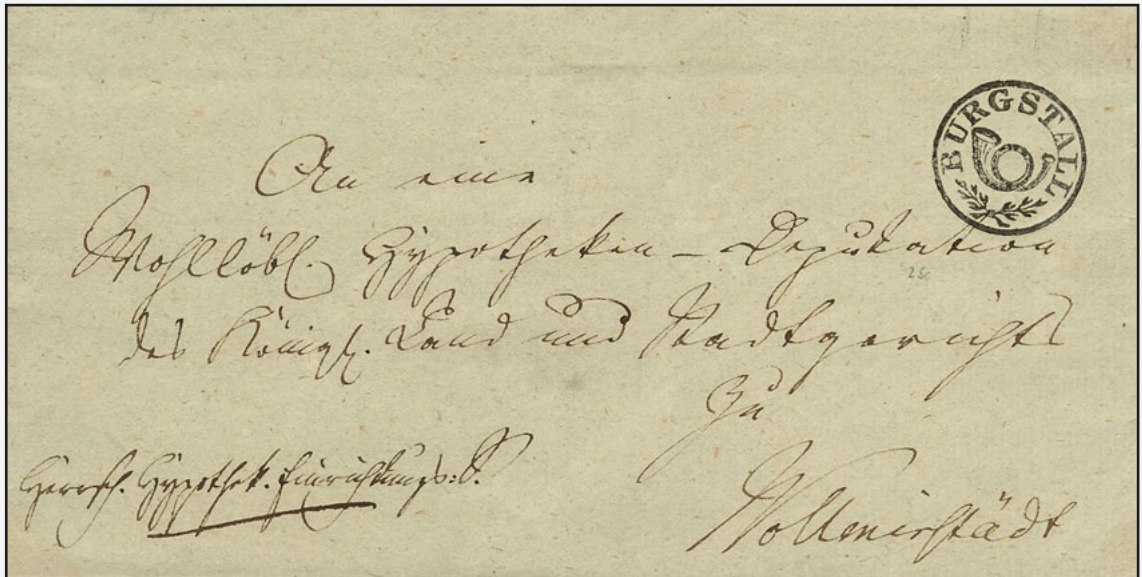 BURGSTALL
An eine
Wohllöbl. Hypotheken-Deputation
250
des Königl. Land und Stadtgerichts
zu
Wollmirstädt
Herrsch. Hypothek. Einrichtungs: S.